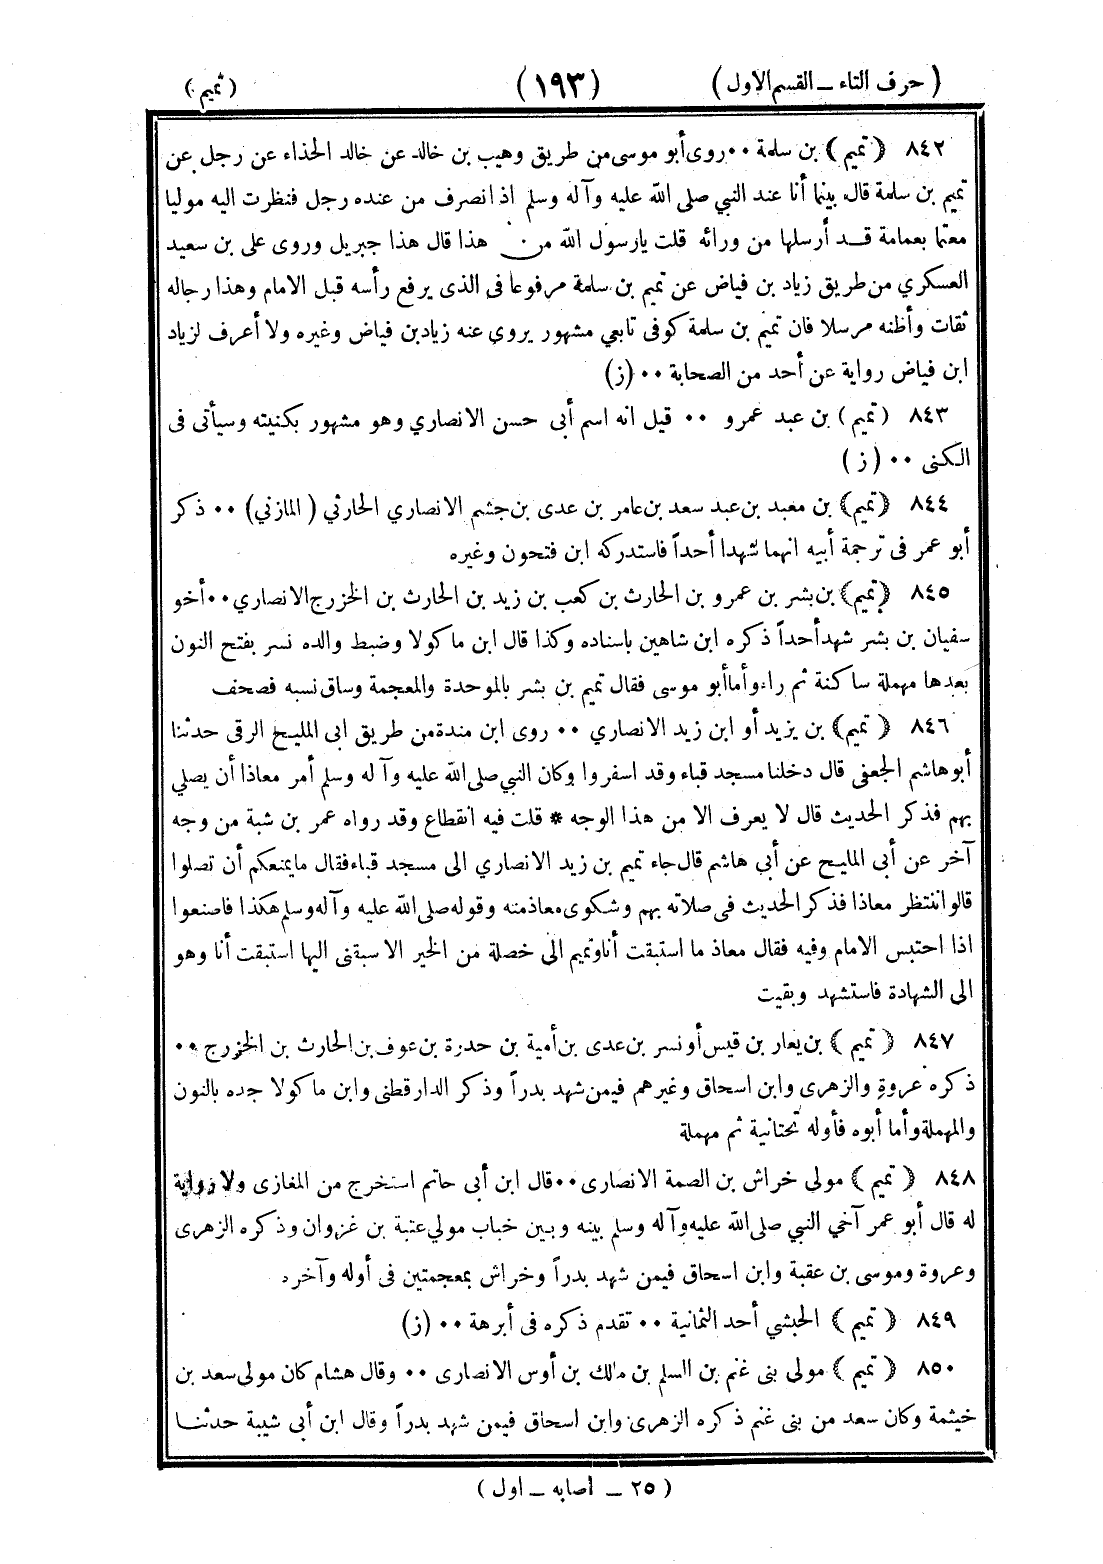 ( حرف التاء ــ القسم الاول )
(١٩٣)
( تميم )
٨٤٢ ﴿ تميم ﴾ بن سلمة ٠٠ روى أبو موسى من طريق وهيب بن خالد عن خالد الحذاء عن رجل عن
تميم بن سلمة قال بينما أنا عند النبي صلى الله عليه وآله وسلم اذ انصرف من عنده رجل فنظرت اليه موليا
معتما بعمامة قد أرسلها من ورائه قلت يارسول الله من هذا قال هذا جبريل وروى على بن سعيد
العسكري من طريق زياد بن فياض عن تميم بن سلمة مرفوعا فى الذى يرفع رأسه قبل الامام وهذا رجاله
ثقات وأظنه مرسلا فان تميم بن سلمة كوفى تابعي مشهور يروى عنه زياد بن فياض وغيره ولا أعرف لزياد
ابن فياض رواية عن أحد من الصحابة ٠٠ (ز)
٨٤٣ ﴿ تميم ﴾ بن عبد عمرو ٠٠ قيل انه اسم أبى حسن الانصاري وهو مشهور بكنيته وسيأتى فى
الكنى ٠٠ ( ز )
٨٤٤ ﴿ تميم ﴾ بن معبد بن عبد سعد بن عامر بن عدى بن جشم الانصاري الحارثي ( المازني ) ٠٠ ذكر
أبو عمر فى ترجمة أبيه انهما شهدا أحداً فاستدركه ابن فتحون وغيره
٨٤٥ ﴿ تميم ﴾ بن بشر بن عمرو بن الحارث بن كعب بن زيد بن الحارث بن الخزرج الانصاري ٠٠ أخو
سفيان بن بشر شهد أحداً ذكره ابن شاهين باسناده وكذا قال ابن ماكولا وضبط والده نسر بفتح النون
بعدها مهملة ساكنة ثم راء وأما أبو موسى فقال تميم بن بشر بالموحدة والمعجمة وساق نسبه فصحف
٨٤٦ ﴿ تميم ﴾ بن يزيد أو ابن زيد الانصاري ٠٠ روى ابن مندة من طريق ابى المليح الرقى حدثنا
أبو هاشم الجعفى قال دخلنا مسجد قباء وقد اسفروا وكان النبي صلى الله عليه وآله وسلم أمر معاذا أن يصلي
بهم فذكر الحديث قال لا يعرف الا من هذا الوجه * قلت فيه انقطاع وقد رواه عمر بن شبة من وجه
آخر عن أبى المليح عن أبي هاشم قال جاء تميم بن زيد الانصاري الى مسجد قباء فقال ما يمنعكم أن تصلوا
قالوا ننتظر معاذا فذكر الحديث فى صلاته بهم وشكوى معاذ منه وقوله صلى الله عليه وآله وسلم هكذا فاصنعوا
اذا احتبس الامام وفيه فقال معاذ ما استبقت أنا وتميم الى خصلة من الخير الا سبقنى اليها استبقت أنا وهو
الى الشهادة فاستشهد وبقيت
٨٤٧ ﴿ تميم ﴾ بن يعار بن قيس أو نسر بن عدى بن أمية بن حدرة بن عوف بن الحارث بن الخزرج ٠٠
ذكره عروة والزهرى وابن اسحاق وغيرهم فيمن شهد بدراً وذكر الدارقطنى وابن ماكولا جده بالنون
والمهملة وأما أبوه فأوله تحتانية ثم مهملة
٨٤٨ ﴿ تميم ﴾ مولى خراش بن الصمة الانصارى ٠٠ قال ابن أبى حاتم استخرج من المغازى ولا رواية
له قال أبو عمر آخي النبي صلى الله عليه وآله وسلم بينه وبين خباب مولى عتبة بن غزوان وذكره الزهرى
وعروة وموسى بن عقبة وابن اسحاق فيمن شهد بدراً وخراش بمعجمتين فى أوله وآخره
٨٤٩ ﴿ تميم ﴾ الحبشي أحد الثمانية ٠٠ تقدم ذكره فى أبرهة ٠٠ (ز)
٨٥٠ ﴿ تميم ﴾ مولى بنى غنم بن السلم بن مالك بن أوس الانصارى ٠٠ وقال هشام كان مولى سعد بن
خيثمة وكان سعد من بنى غنم ذكره الزهرى وابن اسحاق فيمن شهد بدراً وقال ابن أبى شيبة حدثنا
( ٢٥ ــ اصابه ــ اول )